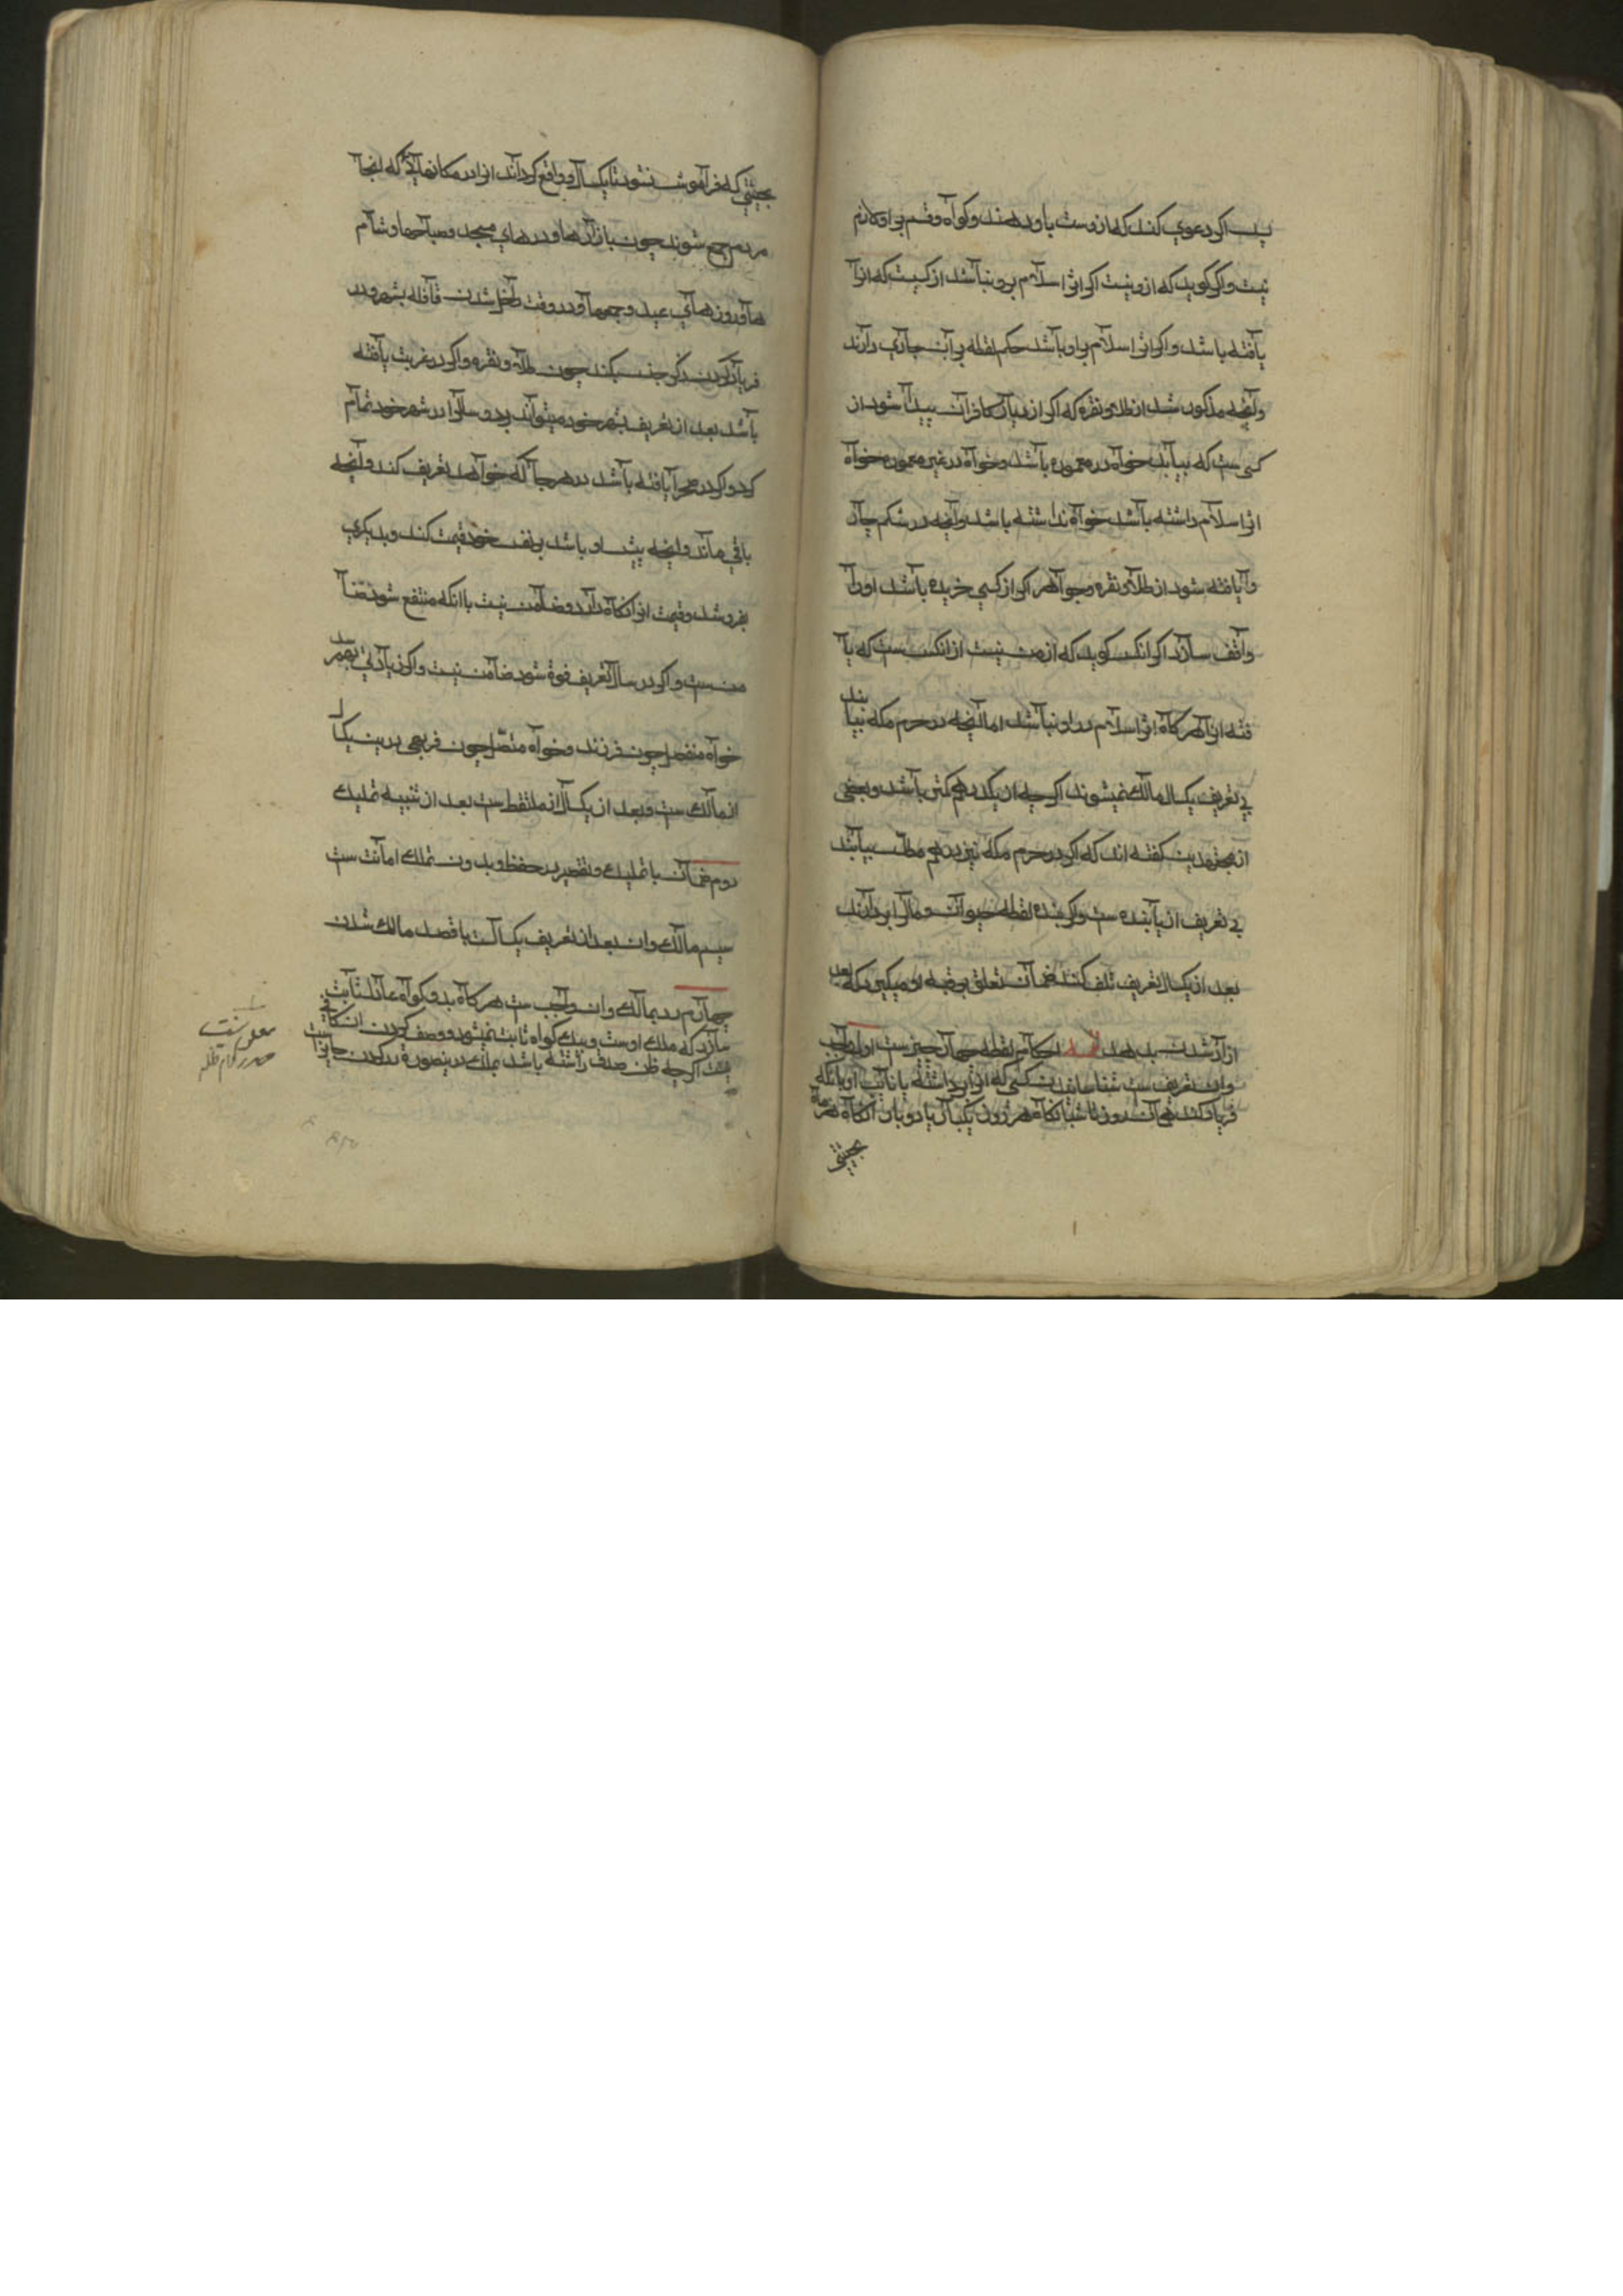 پس اکر دعوی کند که ازوست باو دهند و کواه و قسم براو لازم
نیست و اکر کوید که ازو نیست اکر اثر اسلام برو نباشد از کسیست که انرا
یافته باشد و اکر اثر اسلام براو باشد حکم لقطه بران جاری دارند
وانچه مذکور شد از طلا و نقره که اکر از دیار کافران پیدا شود از
کسی ست که بیابد خواه در معموره باشد و خواه در غیر معموره خواه
اثر اسلام داشته باشد خواه نداشته باشد وانچه در شکم چار
وا یافته شود از طلا و نقره و جواهر اکر از کسی خریده باشد او را
واقف سازد اکر انکس کوید که از من نیست از انکس ست که یا
فته انرا هرکاه اثر اسلام در او نباشد اما انچه در حرم مکه بیابند
بی تعریف یکسال مالک نمیشوند اکرچه از یکدرهم کمتر باشد و بعضی
از مجتهدین کفته اند که اکر در حرم مکه نیز درهم مطلّس بیابند
بی تعریف از یابنده ست و اکر بنده لقطه حیوان و مال را بردارند
بعد از یکسال تعریف تلف کند ضمان تعلق برقبه او میکیرد که بعد
از ازاد شدن بدهد احکام لقطه چهار چیزست اول واجب
وان تعریف ست شناسانیدن کسی که انرا برداشته یا نایب او بانکه
فریاد کند همان روز تا شبانکاه هر روز یکبار یا دو بار انکاه هر ماه
بحیثیتی
بحیثیتی که فراموش نشود تا یکسال و واقع کرداند انرا در مکانهایی که انجا
مردم جمع شوند چون بازارها و درهای مسجد و صباحها و شام
ها و روزهای عید و جمعها و در وقت داخل شدن قافله بشهر و در
فریاد کردن ذکر جنس بکند چون طلا و نقره و اکر در غربت یافته
باشد بعد از تعریف بشهر خود میتواند برد و سال را در شهر خود تمام
کرد و اکر در صحرا یافته باشد در هر جا که خواهد تعریف کند وانچه
باقی ماند وانچه پیش او باشد بر نفس خود قیمت کند و بدیکری
بفروشد و قیمت انرا نکاه دارد و ضامن نیست با انکه منتفع شود ضا
من ست و اکر در سال تعریف فوت شود ضامن نیست و اکر زیادتی بهمرسد
خواه منفصل چون فرزند و خواه متصل چون فربهی درین یکسال
از مالک ست و بعد از یکسال از ملتقط ست بعد از نیت تملیک
دوم ضمان با تملیک و تقصیر در حفظ و بدون تملک امانت ست
سیم مالک وان بعد از تعریف یکسالست با قصد مالک شدن
چهارم رد بمالک وان واجب ست هرکاه بدو کواه عادل ثابت
سازد که ملک اوست و بیک کواه ثابت نمیشود و وصف کردن ان کافی
نیست اکرچه ظن صدق داشته باشد بملک در ینصورة رد کردن جایزاست